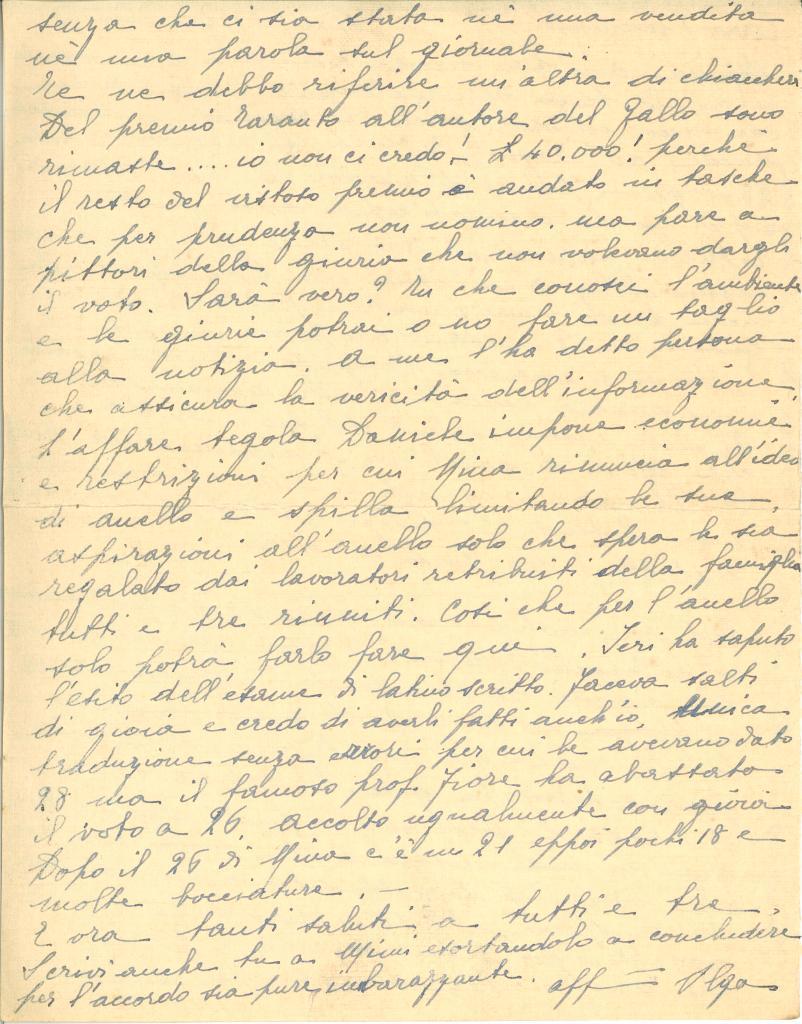 senza che ci sia stata nè una vendita
nè una parola sul giornale.
Te ne debbo riferire un'altra di chiacchieri
Del premio Taranto all'autore del Gallo sono
rimaste .... io non ci credo! £ 40.000! perchè
il resto del vistoso premio è andato in tasche
che per prudenza non nomino. ma pare a
pittori della giuria che non volevano dargli
il voto. Sarà vero? Tu che conosci l'ambiente
e le giurie potrai o no fare un taglio
alla notizia. A me l'ha detto persona
che assicura la vericità dell'informazione.
L'affare tegola Daniele impone economie
e restrizioni per cui Mina rinuncia all'idea
di anello e spilla limitando le sue
aspirazioni all'anello solo che spera le sia
regalato dai lavoratori retribuiti della famiglia
tutti e tre riuniti. Così che per l'anello
solo potrà farlo fare qui. Ieri ha saputo
l'esito dell'esame di latino scritto. Faceva salti
di gioia e credo di averli fatti anch'io. Unica
traduzione senza errori per cui le avevano dato
28 ma il famoso prof. Fiore ha abassato
il voto a 26. accolto ugualmente con gioia
Dopo il 26 di Mina c'è un 21 eppoi pochi 18 e
molte bocciature. —
E ora tanti saluti a tutti e tre.
Scrivi anche tu a Mimì esortandolo a concludere
per l'accordo sia pure imbarazzante. aff — Olga